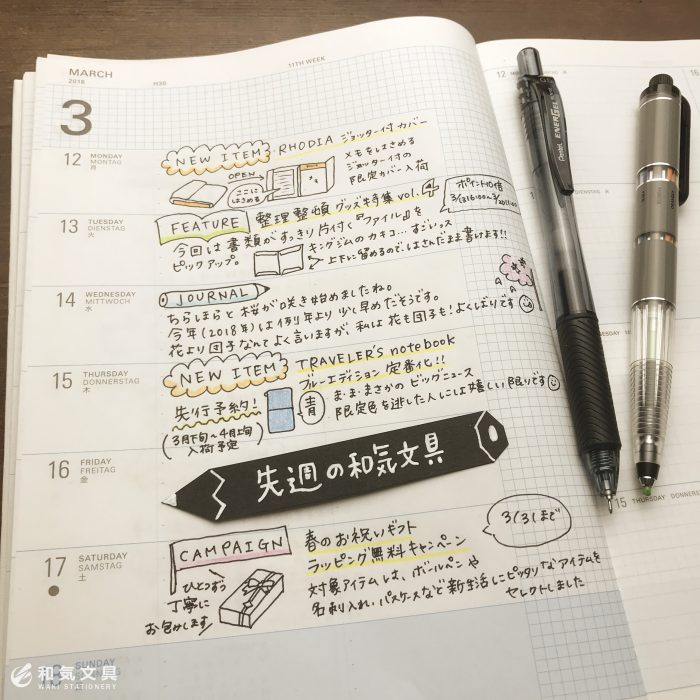 MARCH
2018
H30
11TH WEEK
3
12 MONDAY
MONTAG
月
NEW ITEM RHODIA ジョッター付カバー
OPEN
ここに
はさめる
メモをはさめる
ジョッター付の
限定カバー入荷
13 TUESDAY
DIENSTAG
火
FEATURE 整理整頓グッズ特集 vol.4
ポイント10倍
今回は書類がすっきり片付く『ファイル』を
ピックアップ。
キングジムのカキコ…すごいっス
上下に留めるので、はさんだまま書けます!!
14 WEDNESDAY
MITTWOCH
水
JOURNAL
ちらほらと桜が咲き始めましたね。
今年(2018年)は例年より少し早めだそうです。
花より団子なんてよく言いますが、私は花も団子も!よくばりです
15 THURSDAY
DONNERSTAG
木
NEW ITEM TRAVELER'S notebook
ブルーエディション定番化!!
先行予約!
(3月下旬〜4月上旬
入荷予定)
青
ま・ま・まさかのビッグニュース
限定色を逃した人にしは嬉しい限りです
16 FRIDAY
FREITAG
金
先週の和気文具
17 SATURDAY
SAMSTAG
土
CAMPAIGN
ひとつずつ
丁寧に
お包みします
春のお祝いギフト
ラッピング無料キャンペーン
3/31まで
対象アイテムは、ボールペンや
名刺入れ、パスケースなど新生活にピッタリなアイテムを
セレクトしました
18 SUNDAY
SONNTAG
和気文具
WAKI STATIONERY
12
Pentel ENERGEL
15 THURSDAY DONNERSTAG